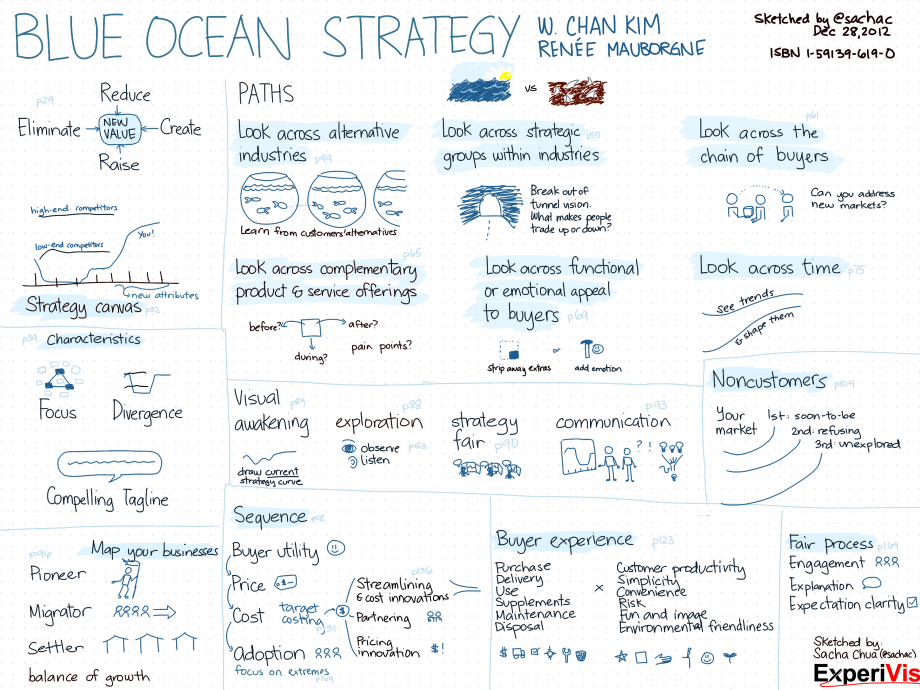 BLUE OCEAN STRATEGY
W. CHAN KIM
RENÉE MAUBORGNE
Sketched by @sachac
Dec 28, 2012
ISBN 1-59139-619-0
p29
Reduce
Eliminate
NEW
VALUE
Create
Raise
high-end competitors
low-end competitors
you!
new attributes
Strategy canvas p32
PATHS
vs
Look across alternative
industries p49
Learn from customers' alternatives
Look across strategic
groups within industries
p55
Break out of
tunnel vision.
What makes people
trade up or down?
p61
Look across the
chain of buyers
Can you address
new markets?
p65
Look across complementary
product & service offerings
before?
after?
during?
pain points?
Look across functional
or emotional appeal
to buyers p69
strip away extras
or
add emotion
Look across time p75
see trends
& shape them
p39 Characteristics
Focus
Divergence
Compelling Tagline
Visual
awakening
p84
draw current
strategy curve
p88
exploration
observe
listen
strategy
fair p90
p93
communication
? !
Noncustomers p104
Your
market
1st: soon-to-be
2nd: refusing
3rd: unexplored
p96
Map your businesses
Pioneer
Migrator
Settler
balance of growth
Sequence p118
Buyer utility
Price
Cost
target
costing
$
p131
Adoption
focus on extremes
p136
Streamlining
& cost innovations
Partnering
Pricing
innovation
$!
Buyer experience p123
Purchase
Delivery
Use
Supplements
Maintenance
Disposal
x
Customer productivity
Simplicity
Convenience
Risk
Fun and image
Environmental friendliness
$
Fair process p169
Engagement
Explanation
Expectation clarity
Sketched by:
Sacha Chua (@sachac)
ExperiVis